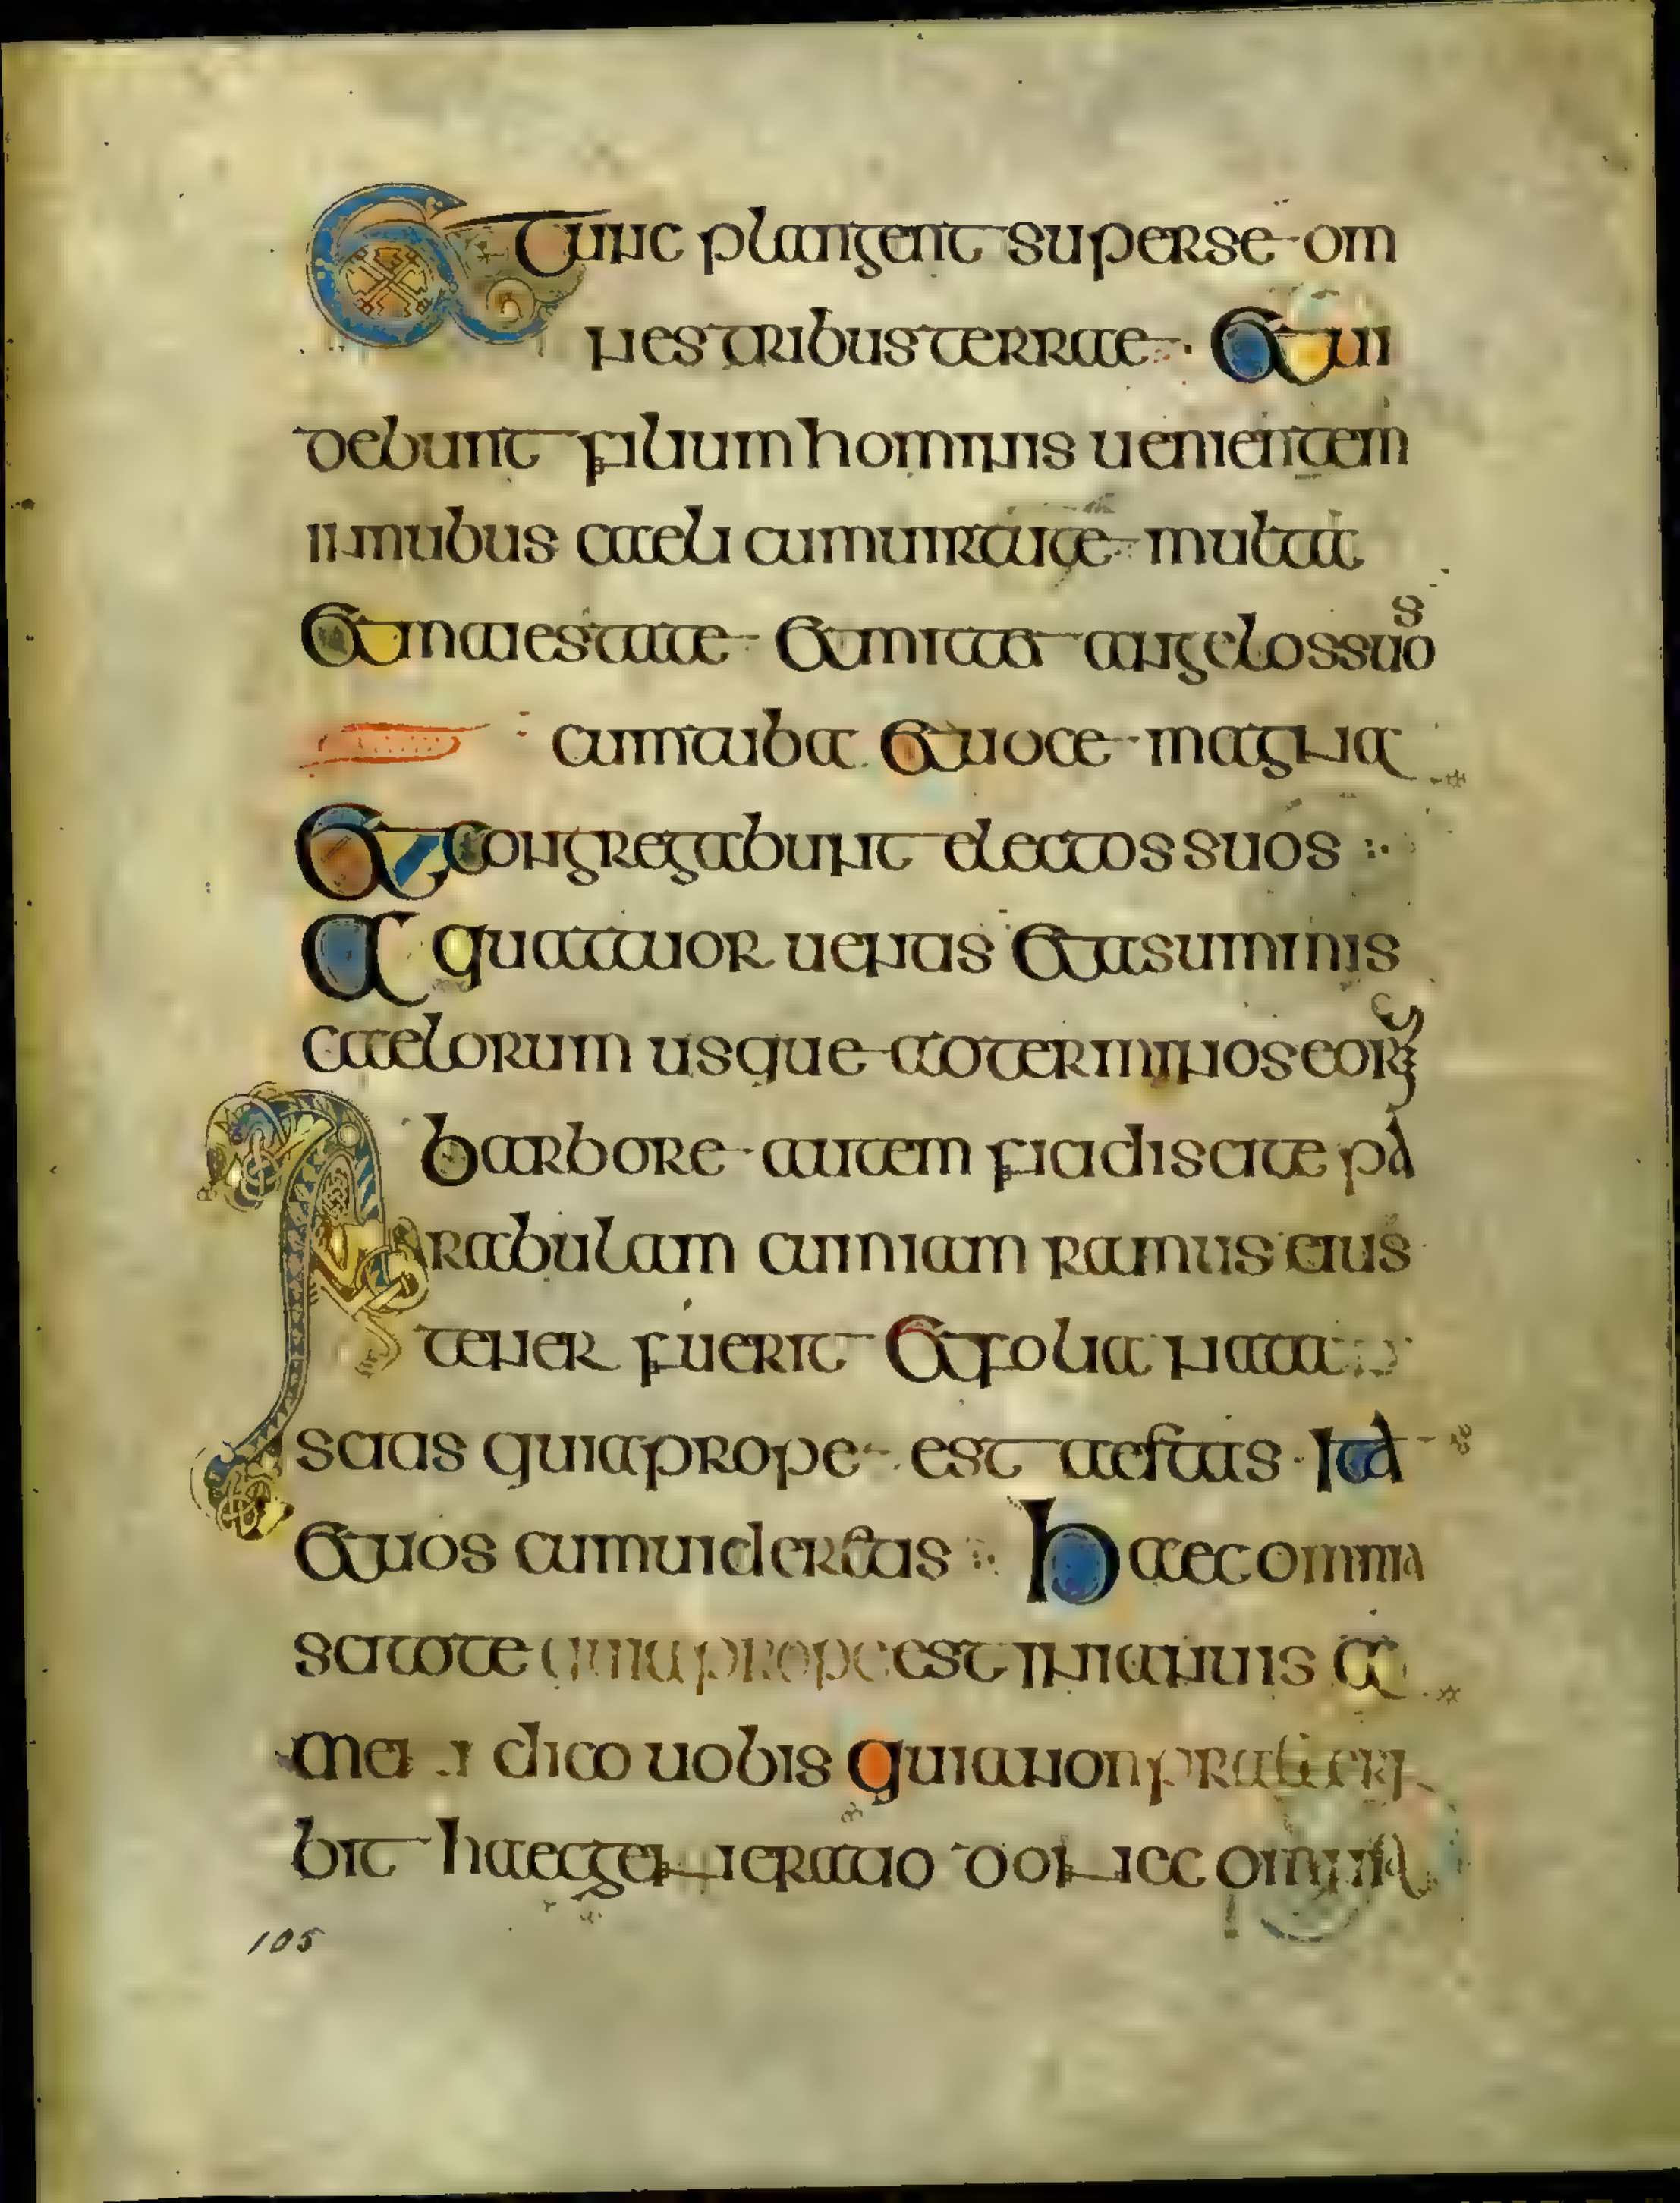 Et tunc plangent super se om
nes tribus terrae · Et ui
debunt filium hominis uenientem
in nubus caeli cum uirtute multa
et maiestate et mittet angelos suos
cum tuba et uoce magna
Et congregabunt electos suos
A quattuor uentis et a summinis
caelorum usque ad terminos eorum
Ab arbore autem fici discite pa
rabulam cum iam ramus eius
tener fuerit et folia nata
scitis quia prope est aestas · Ita
et uos cum uideritis haec omnia
scitote quia prope est in ianuis a
men dico uobis quia non prateri
bit haec generatio donec omnia
105